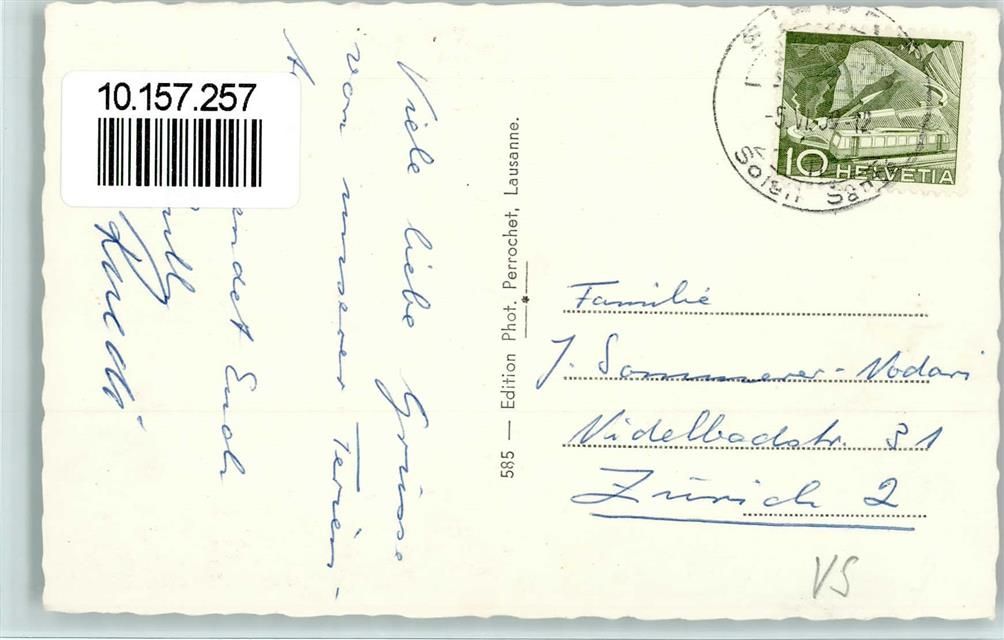 10.157.257
Viele liebe Grüsse
von unserer Ferien-
sendet Euch
Ruedi
585 — Edition Phot. Perrochet, Lausanne.
10 HELVETIA
Familie
J. Sommerer-Nodari
Nidelbadstr. 81
Zürich 2
VS